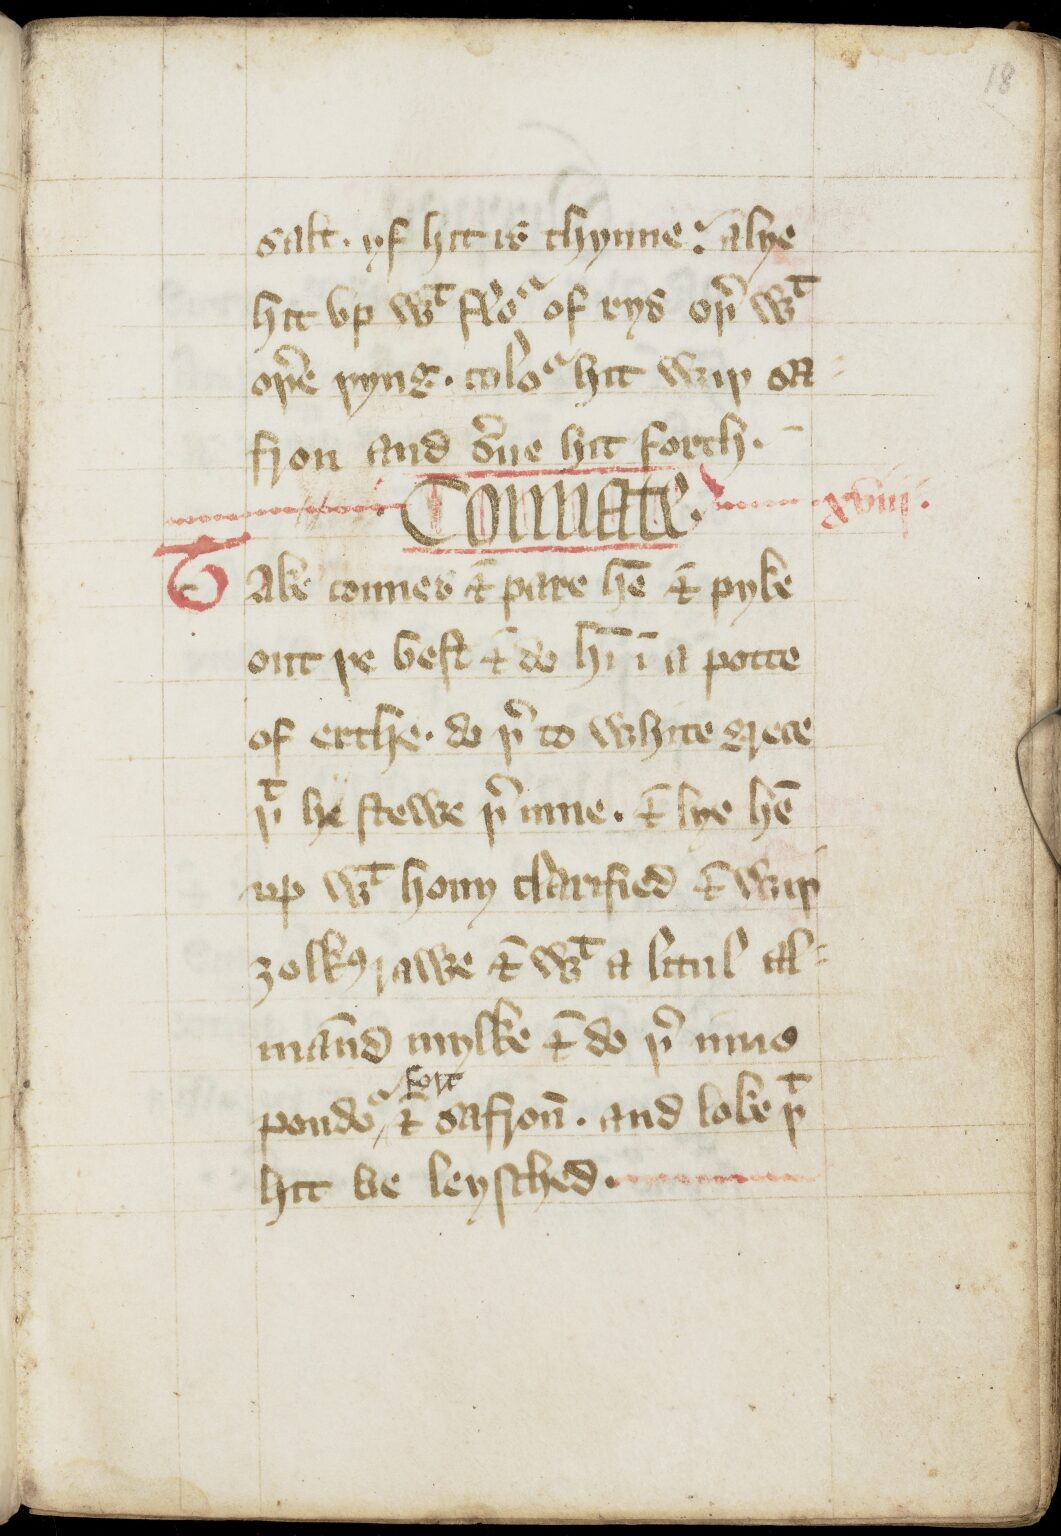 18
salt. yf hit is thynne: alye
hit vp wt floᵃ of rys oþͬ wt
oþͬe þyng. coloᵃ hit wiþ sa-
fron and sͬue hit forth.
Connate. xviij.
Take connes & pare hē & pyke
out þe best & do hī ī a potte
of erthe. do þͬ to white grece
þt he stewe þͬ inne. & lye hē
up wt hony clarified & wiþ
ȝolkꝯ rawe & wt a litul al-
mānd mylke & do þͬ inne
poudoᵃ fort & safron̄. and loke þt
hit be leysched.